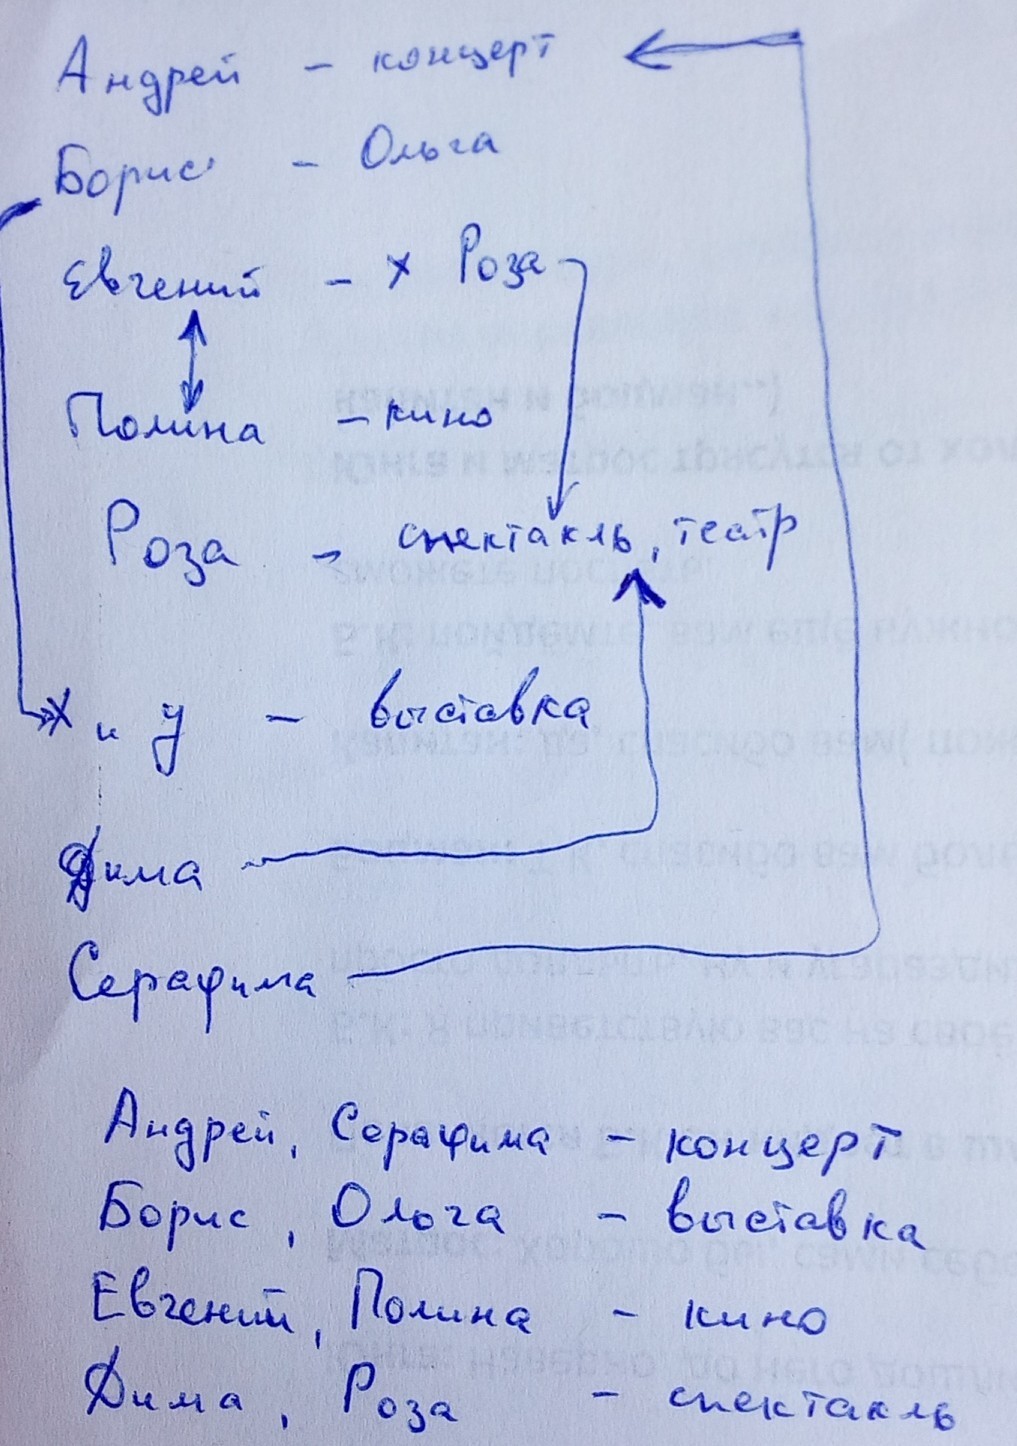 Андрей - концерт
Борис - Ольга
Евгений - х Роза
Полина - кино
Роза - спектакль, театр
х и у - выставка
Дима
Серафима
Андрей, Серафима - концерт
Борис, Ольга - выставка
Евгений, Полина - кино
Дима, Роза - спектакль